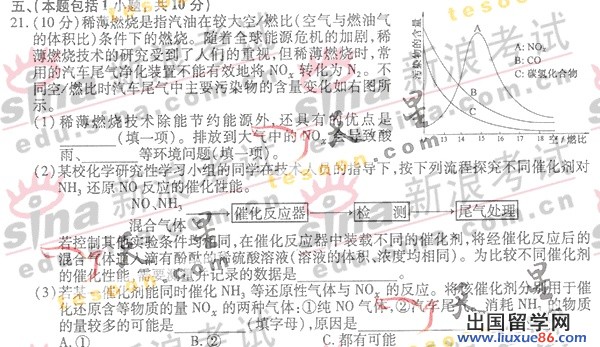 五、(本题包括1小题，共10分)
21.(10分)稀薄燃烧是指汽油在较大空/燃比(空气与燃油气
的体积比)条件下的燃烧。随着全球能源危机的加剧，稀
薄燃烧技术的研究受到了人们的重视，但稀薄燃烧时，常
用的汽车尾气净化装置不能有效地将 NOx 转化为 N2。不
同空/燃比时汽车尾气中主要污染物的含量变化如右图所
示。
污染物的含量
A
B
C
A: NOx
B: CO
C: 碳氢化合物
13 14 15 16 17 18 空/燃比
(1)稀薄燃烧技术除能节约能源外，还具有的优点是
(填一项)。排放到大气中的 NOx 会导致酸
雨、 等环境问题(填一项)。
(2)某校化学研究性学习小组的同学在技术人员的指导下，按下列流程探究不同催化剂对
NH3 还原 NO 反应的催化性能。
NO、NH3
混合气体 催化反应器 检 测 尾气处理
若控制其他实验条件均相同，在催化反应器中装载不同的催化剂，将经催化反应后的
混合气体通入滴有酚酞的稀硫酸溶液(溶液的体积、浓度均相同)。为比较不同催化剂
的催化性能，需要测量并记录的数据是
(3)若某 催化剂能同时催化 NH3 等还原性气体与 NOx 的反应。将该催化剂分别用于催
化还原含等物质的量 NOx 的两种气体:①纯 NO 气体，②汽车尾气。消耗 NH3 的物质
的量较多的可能是 (填字母)，原因是
A.① B.② C.都有可能
sina 新浪考试
tesoon
天星
出国留学网
www.liuxue86.com